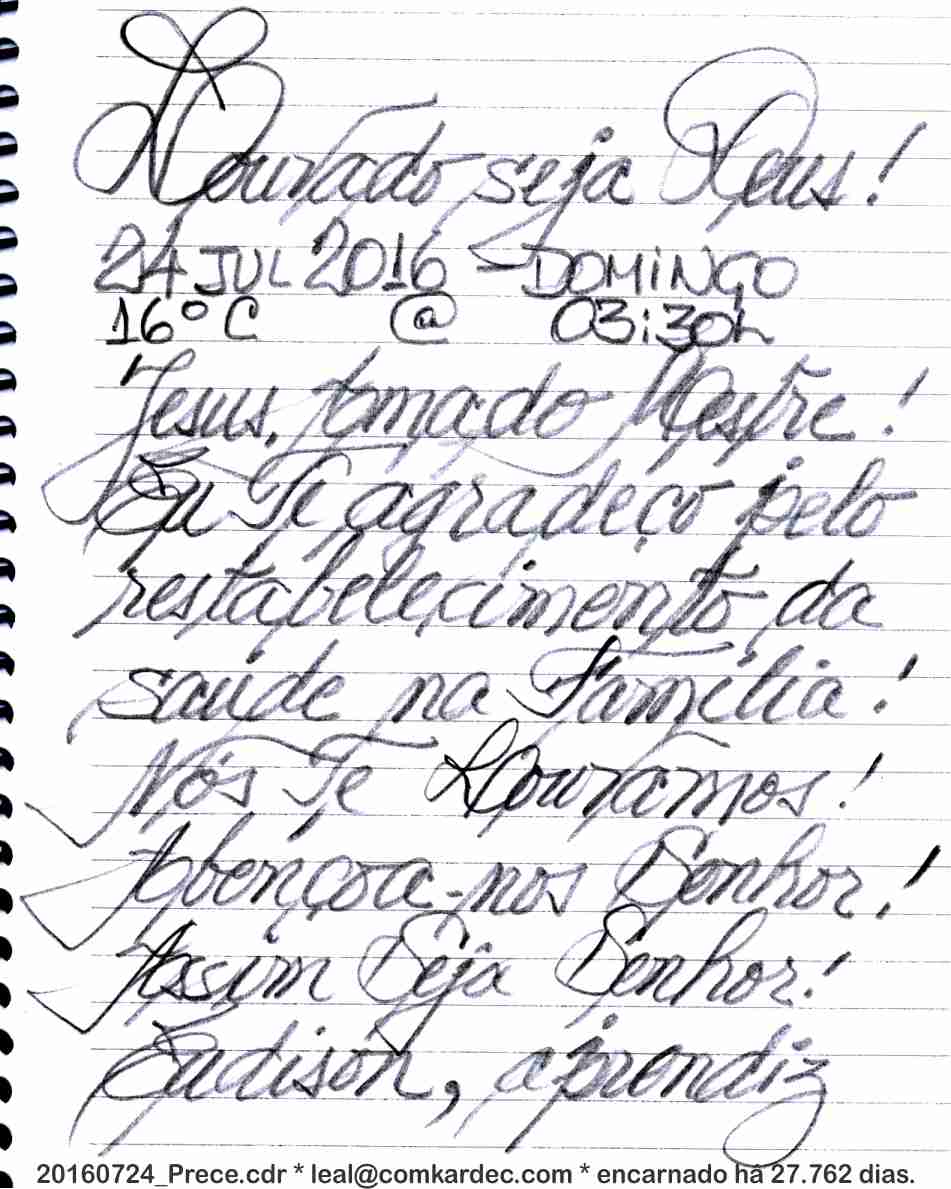 Louvado seja Deus!
24 JUL 2016 - DOMINGO
16º C @ 03:30h
Jesus, Amado Mestre!
Eu Te agradeço pelo
restabelecimento da
saúde na Família!
Nós Te Louvamos!
Abençoa-nos Senhor!
Assim Seja Senhor!
Eudison, aprendiz
20160724_Prece.cdr * leal@comkardec.com * encarnado há 27.762 dias.